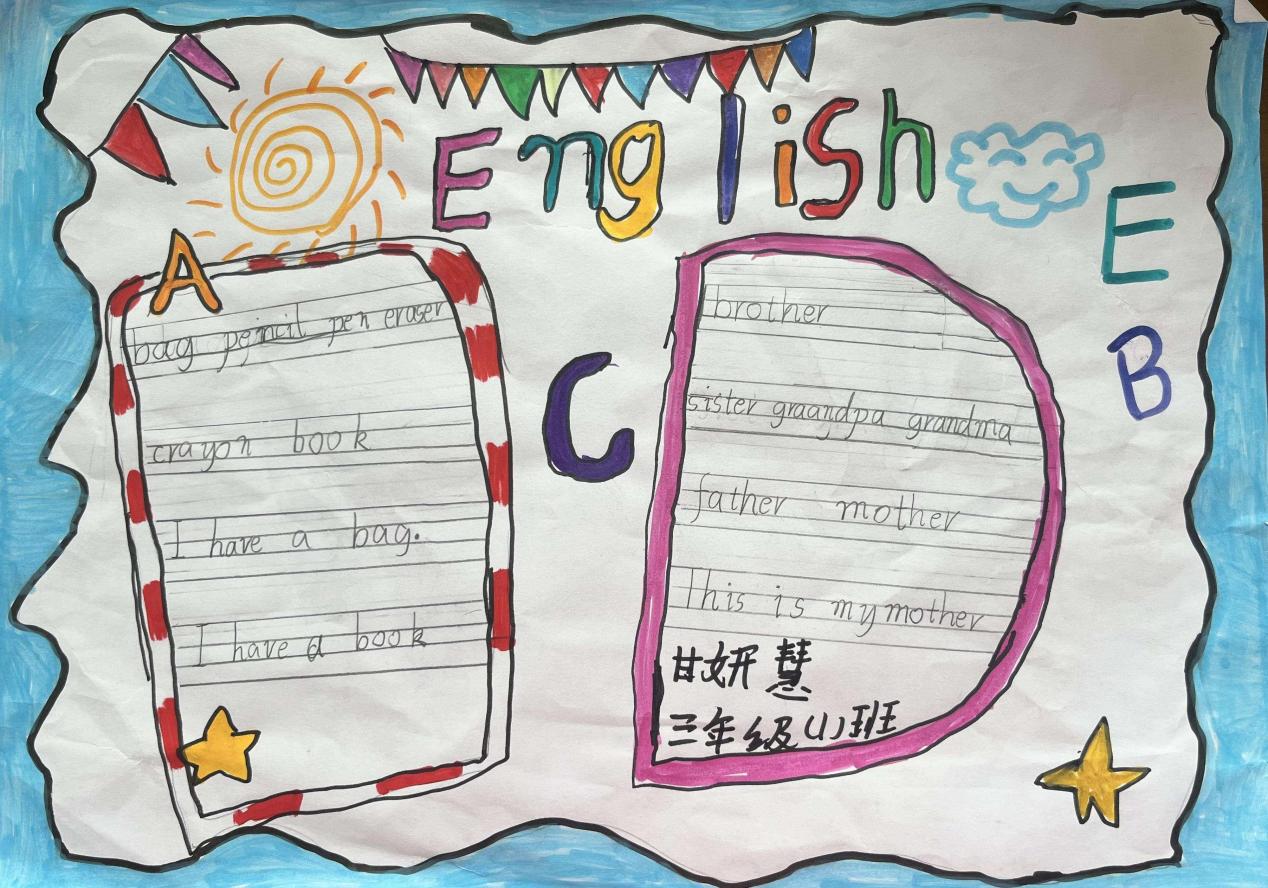 English
E
A
B
C
bag pejncil pen eraser
crayon book
I have a bag.
I have a book
brother
sister graandpa grandma
father mother
This is my mother
甘妍慧
三年级(1)班